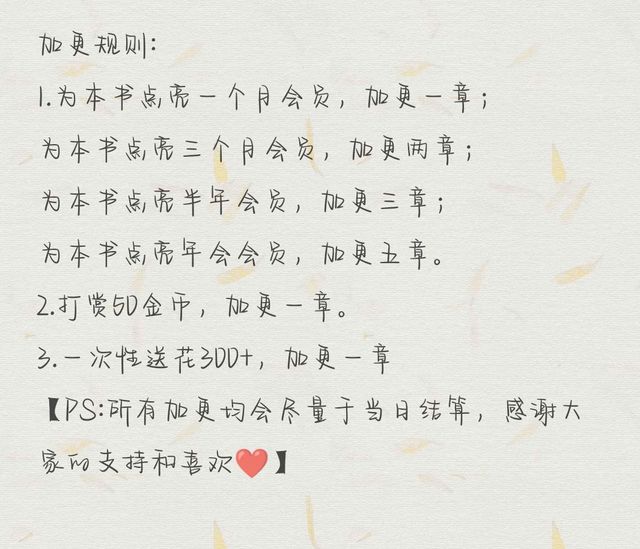 加更规则:
1.为本书点亮一个月会员，加更一章；
为本书点亮三个月会员，加更两章；
为本书点亮半年会员，加更三章；
为本书点亮年会会员，加更五章。
2.打赏50金币，加更一章。
3.一次性送花300+，加更一章
【PS:所有加更均会尽量于当日结算，感谢大
家的支持和喜欢❤️】